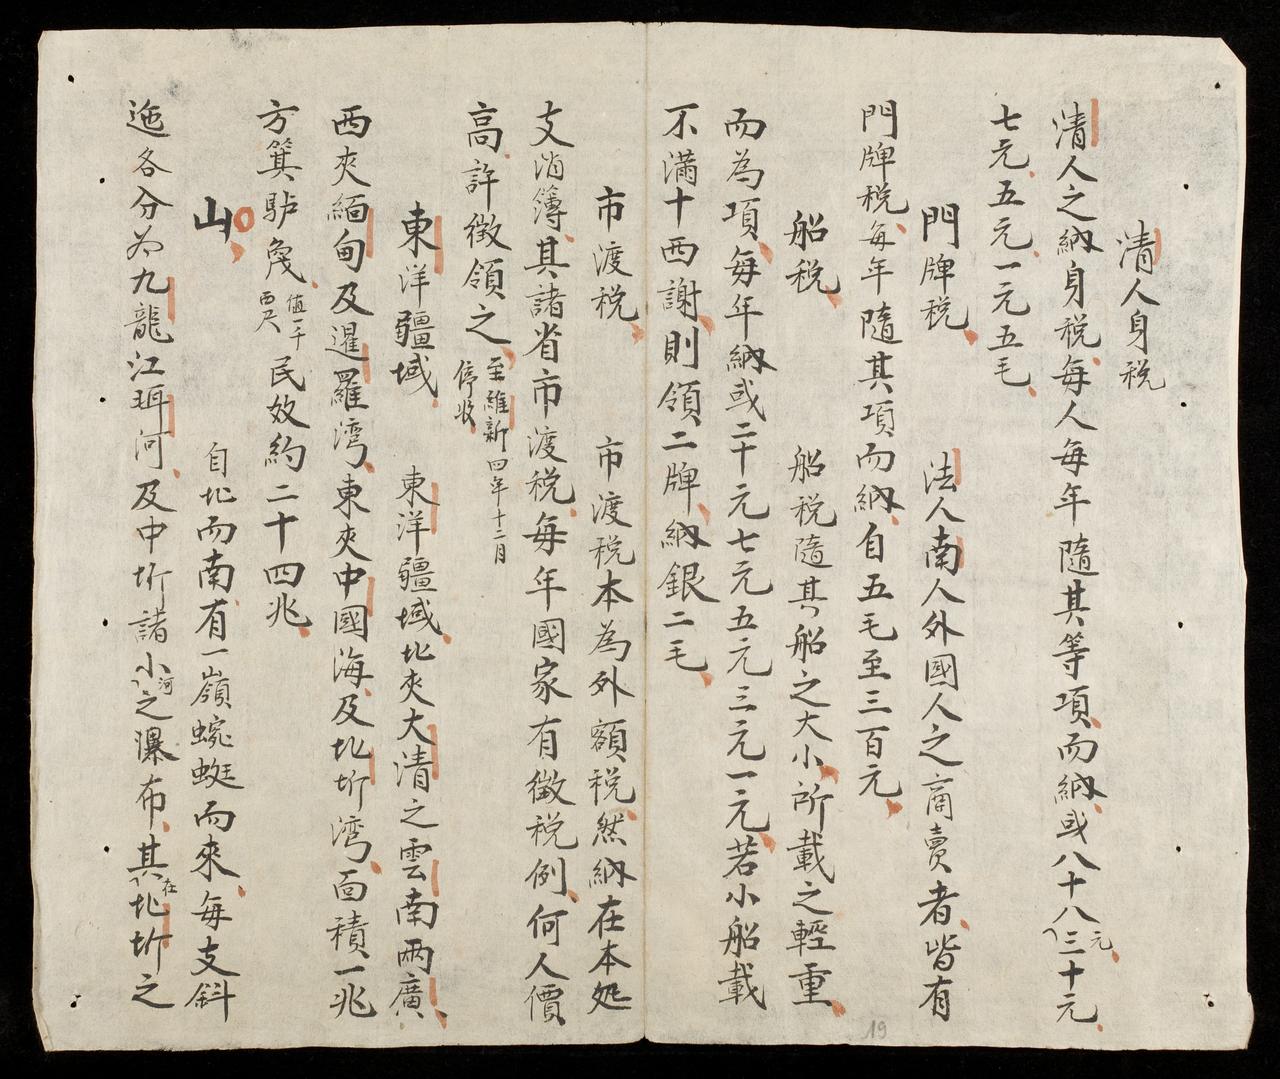 清人身税
清人之納身税每人每年隨其等項而納或八十八元三十元
七元五元一元五毛
門牌税 法人南人外國人之商賣者皆有
門牌税每年隨其項而納自五毛至三百元
船税 船税隨其船之大小所載之輕重
而為項每年納或二十元七元五元三元一元若小船載
不滿十西謝則領二牌納銀二毛
市渡税 市渡税本為外額税然納在本処
支消簿其諸省市渡税每年國家有徵税例何人價
高許徵領之至維新四年十二月停收
東洋疆域 東洋疆域北夾大清之雲南兩廣
西夾緬甸及暹羅湾東夾中國海及北圻湾面積一兆
方箕馿𠒦值一千西尺民奴約二十四兆
山 自北而南有一嶺蜿蜒而來每支斜
迤各分为九龍江珥河及中圻諸小河之瀑布其在北圻之